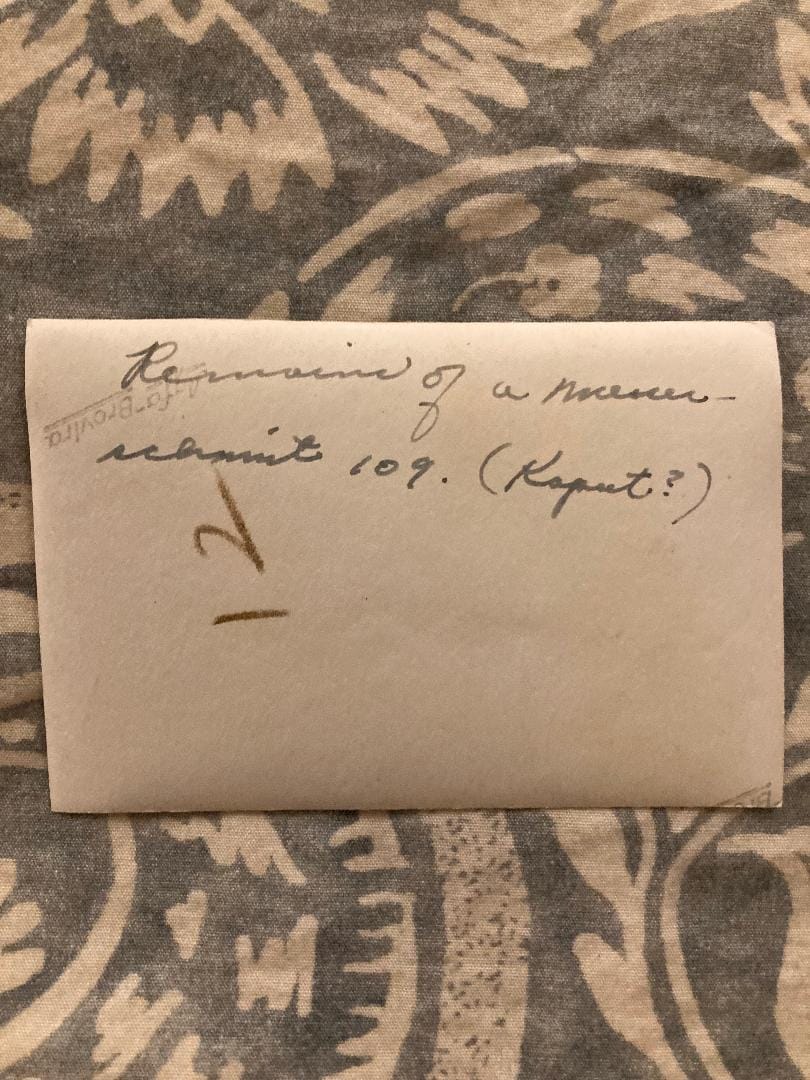 Remains of a Messer-
schmit 109. (Kaput?)
12
Agfa-Brovira
Bro